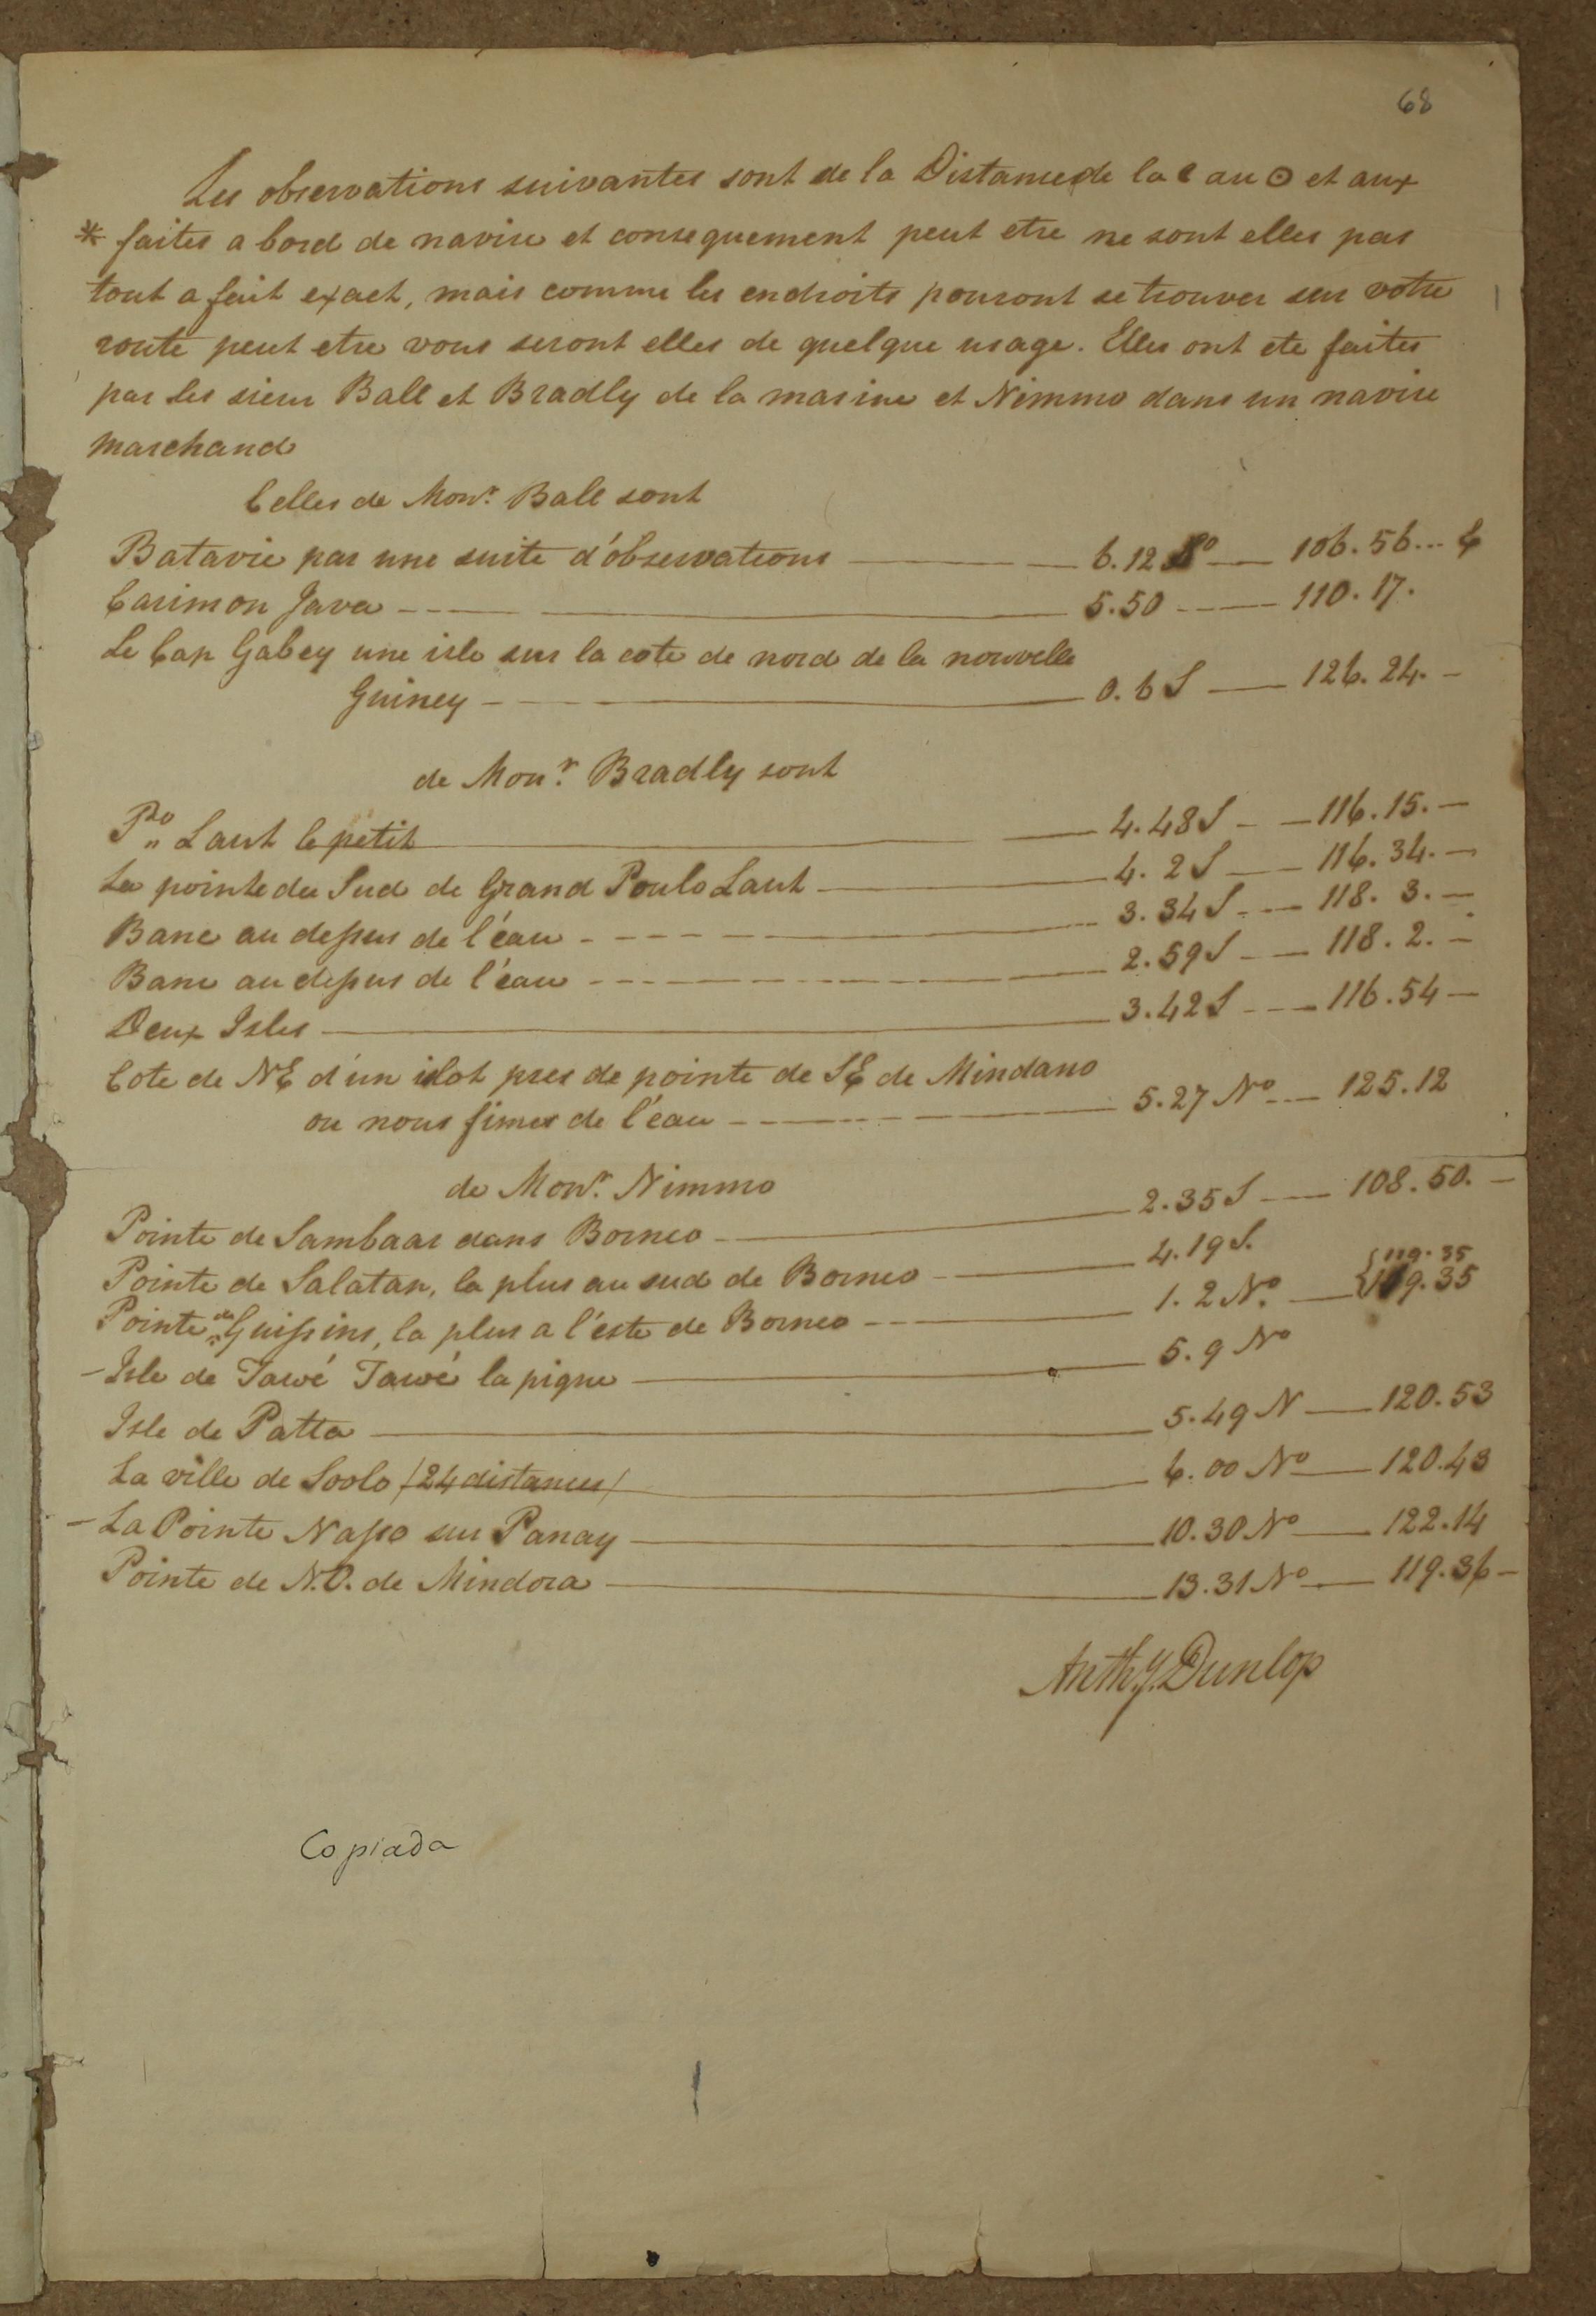 68
Les observations suivantes sont de la Distance de la ☾ au ☉ et aux
* faites a bord de navire et consequement peut etre ne sont elles pas
tout a fait exact, mais comme les endroits pouront se trouver sur votre
route peut etre vous seront elles de quelque usage. Elles ont ete faites
par les sieur Ball et Bradly de la marine et Nimmo dans un navire
marchand
Celles de Monr. Ball sont
Batavie par une suite d'observations 6.12 So 106.56... E
Carimon Java 5.50 110.17.
Le Cap Gabey une isle sur la cote de nord de la nouvelle
Guiney 0.6 S 126.24.
de Monr. Bradly sont
Po Laut le petit 4.48 S 116.15.
La pointe du Sud de Grand Poulo Laut 4.2 S 116.34.
Banc au dessus de l'éau 3.34 S 118.3.
Banc au dessus de l'éau 2.59 S 118.2.
Deux Isles 3.42 S 116.54
Cote de NE d'un islot pres de pointe de SE de Mindano
ou nous fimes de l'éau 5.27 No 125.12
de Monr. Nimmo
Pointe de Sambaar dans Borneo 2.35 S 108.50.
Pointe de Salatan, la plus au sud de Borneo 4.19 S.
119.35
Pointe de Guissins, la plus a l'este de Borneo 1.2 No. 119.35
Isle de Tawé Tawé la pigne 5.9 No
Isle de Patta 5.49 N 120.53
La ville de Soolo /24 distances/ 6.00 No 120.43
La Pointe Nasso sur Panay 10.30 No 122.14
Pointe de N.O. de Mindora 13.31 No 119.36
Anthy. Dunlop
Copiada